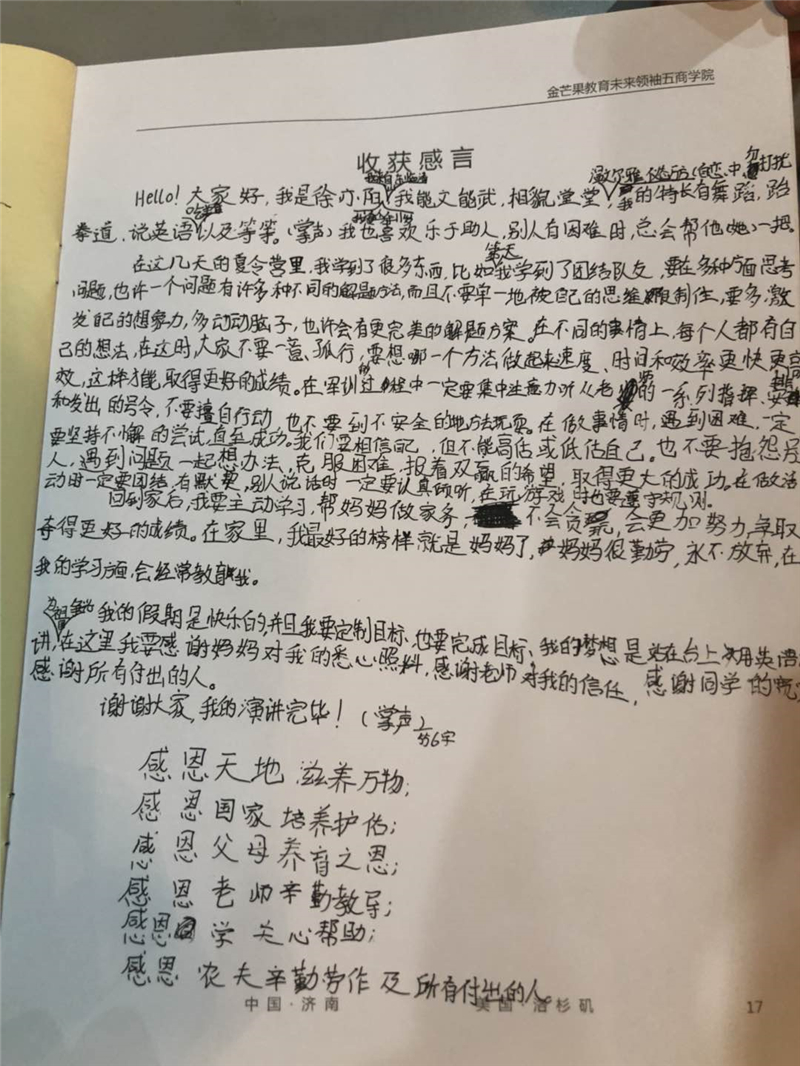 金芒果教育未来领袖五商学院
收获感言
Hello！大家好，我是徐亦阳，我能文能武，相貌堂堂，我的特长有舞蹈，跆
拳道，说英语以及等等。（掌声）我也喜欢乐于助人，别人有困难时，总会帮他（她）一把。
在这几天的夏令营里，我学到了很多东西，比如第一天我学到了团结队友，要在多种方面思考
问题，也许一个问题有许多种不同的解题方法，而且不要单一地被自己的思维限制住，要多激
发自己的想象力，多动动脑子，也许会有更完美的解题方案。在不同的事情上，每个人都有自
己的想法，在这时，大家不要一意孤行，要想哪一个方法做起来速度、时间和效率更快更
效，这样才能取得更好的成绩。在军训过程中一定要集中注意力听从老师的一系列指挥，
和发出的号令，不要擅自行动，也不要到不安全的地方去玩耍。在做事情时，遇到困难，一定
要坚持不懈的尝试，直至成功。我们要相信自己，但不能高估或低估自己。也不要抱怨另
人，遇到问题一起想办法，克服困难，报着双赢的希望，取得更大的成功。在做活
动时一定要团结，有默契，别人说话时一定要认真倾听，在玩游戏时也要遵守规则。
回到家后，我要主动学习，帮妈妈做家务，不会贪玩，会更加努力，争取
夺得更好的成绩。在家里，我最好的榜样就是妈妈了，妈妈很勤劳，永不放弃，在
我的学习方面，会经常教育我。
我的假期是快乐的，并且我要定制目标，也要完成目标，我的梦想是站在台上用英语
讲，在这里我要感谢妈妈对我的悉心照料，感谢老师对我的信任，感谢同学的
感谢所有付出的人。
谢谢大家，我的演讲完毕！（掌声）
556字
感恩天地滋养万物；
感恩国家培养护佑；
感恩父母养育之恩；
感恩老师辛勤教导；
感恩同学关心帮助；
感恩农夫辛勤劳作及所有付出的人。
中国·济南 美国·洛杉矶 17